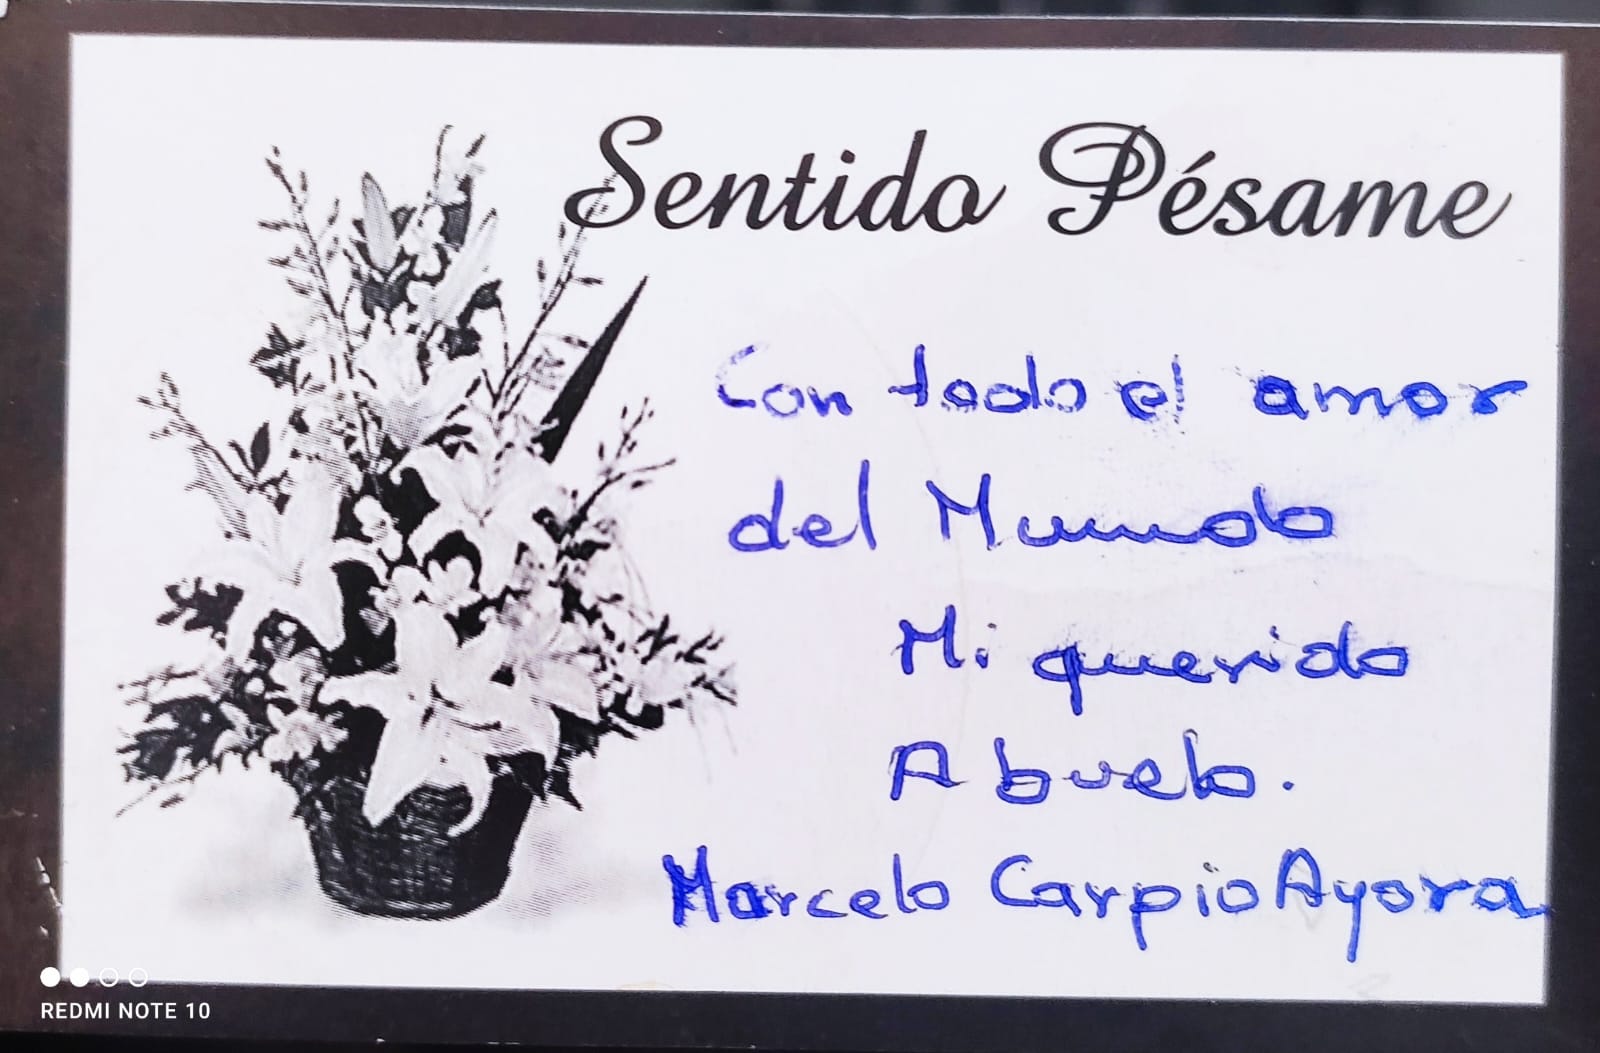 Sentido Pésame
Con todo el amor
del Mundo
Mi querido
Abuelo.
Marcelo Carpio Ayora
REDMI NOTE 10